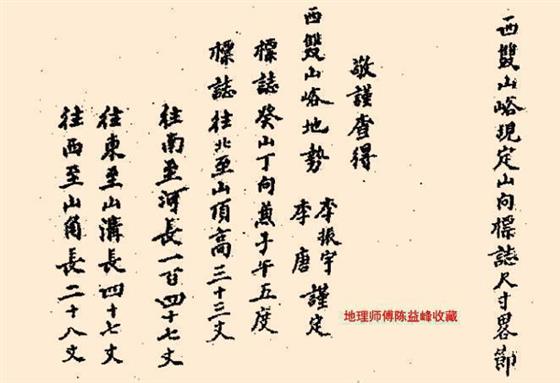 西雙山峪現定山向標誌尺寸畧節
敬謹查得
西雙山峪地勢
李振宇
李唐
謹定
標誌癸山丁向兼子午五度
標誌往北至山頂高三十三丈
往南至河長一百四十七丈
往東至山溝長四十七丈
往西至山角長二十八丈
地理师傅陈益峰收藏